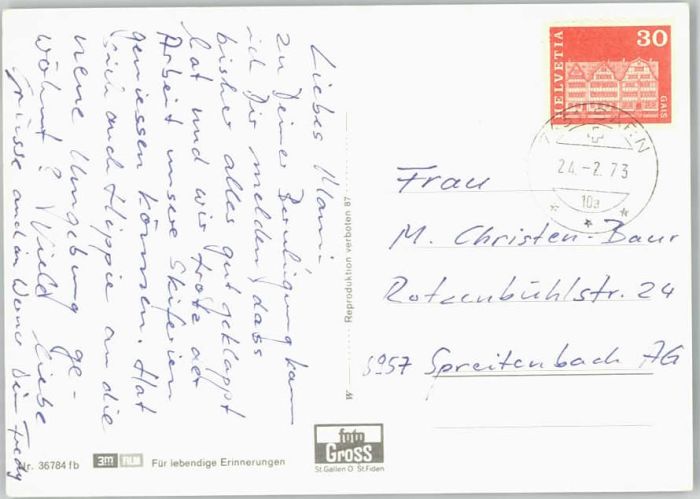 Liebes Mami.
Zu Deiner Beruhigung kann
ich Dir melden, dass
bisher alles gut geklappt
hat und wir trotz der
Arbeit unsere Skiferien
geniessen können. Hat
sich auch Hippie an die
neue Umgebung ge-
wöhnt? Viele liebe
Grüsse auch an Werner Dein Fredy
Nr. 36784 fb
3M FILM
Für lebendige Erinnerungen
W
Reproduktion verboten 87
foto
GROSS
St.Gallen O St.Fiden
HELVETIA
30
GAIS
24.-2.73
10a
Frau
M. Christen-Baur
Rotzenbühlstr. 24
8957 Spreitenbach AG